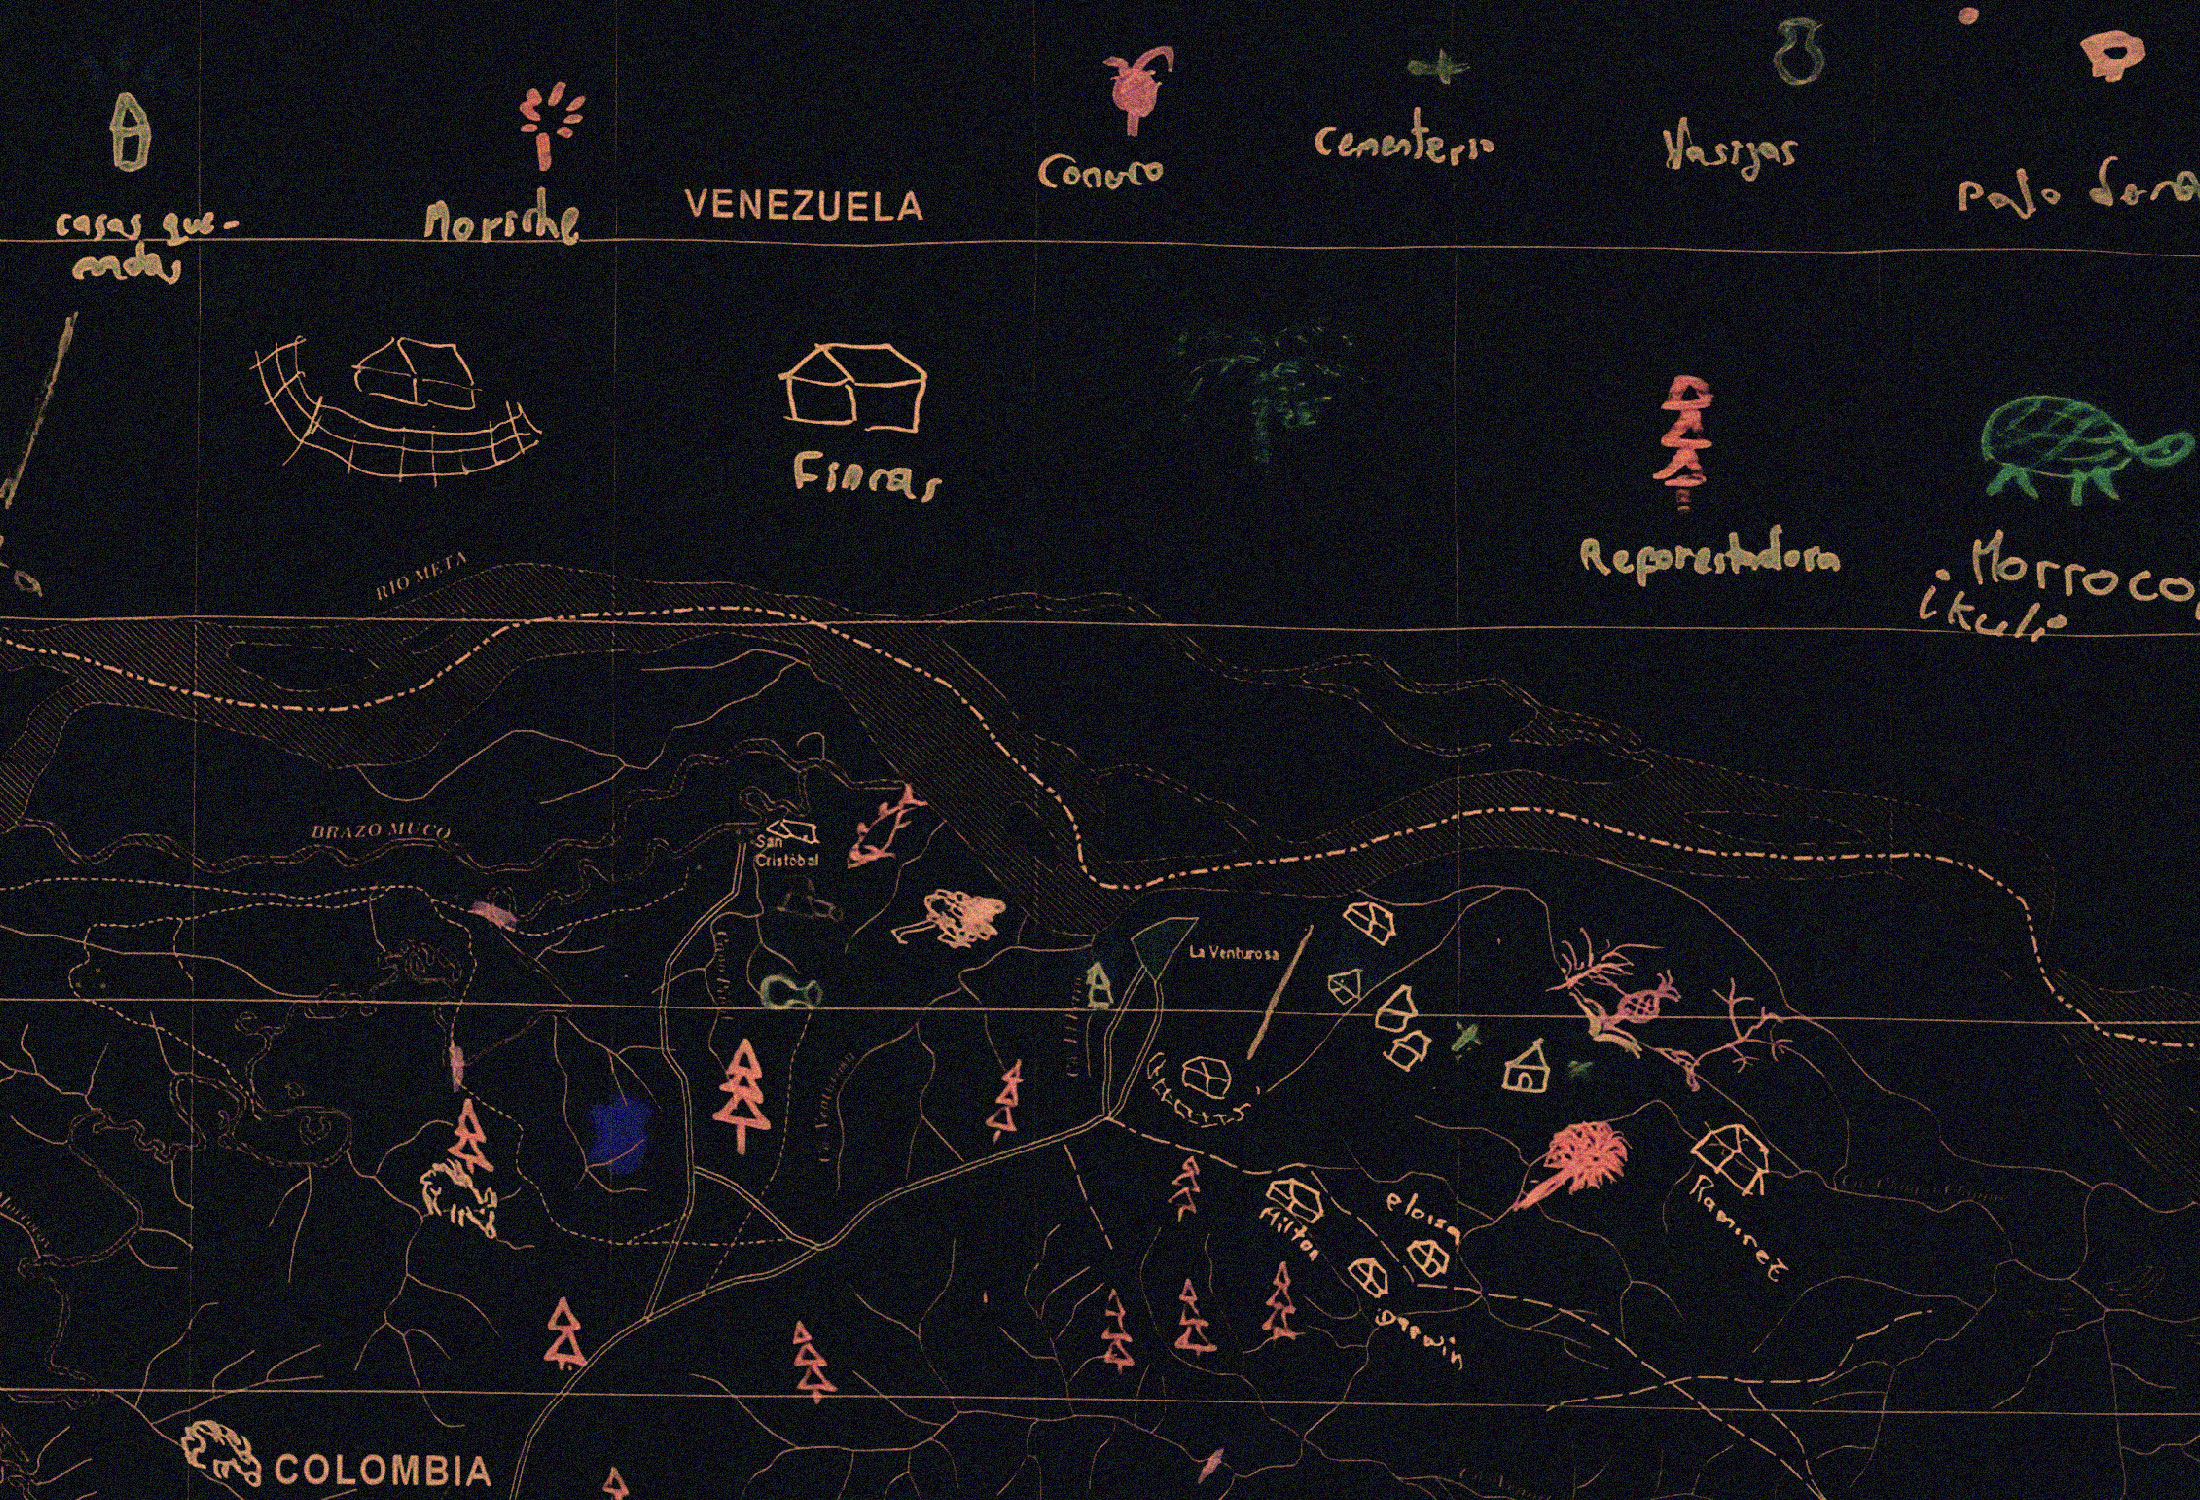 casas que-
mdas
Moriche
VENEZUELA
Conuco
Cementerio
Vasijas
Palo
Fincas
Reforestadora
Morroco
ikuli
RIO META
BRAZO MUCO
San
Cristobal
La Venturosa
Milton
eloisa
Darwin
Ramirez
COLOMBIA